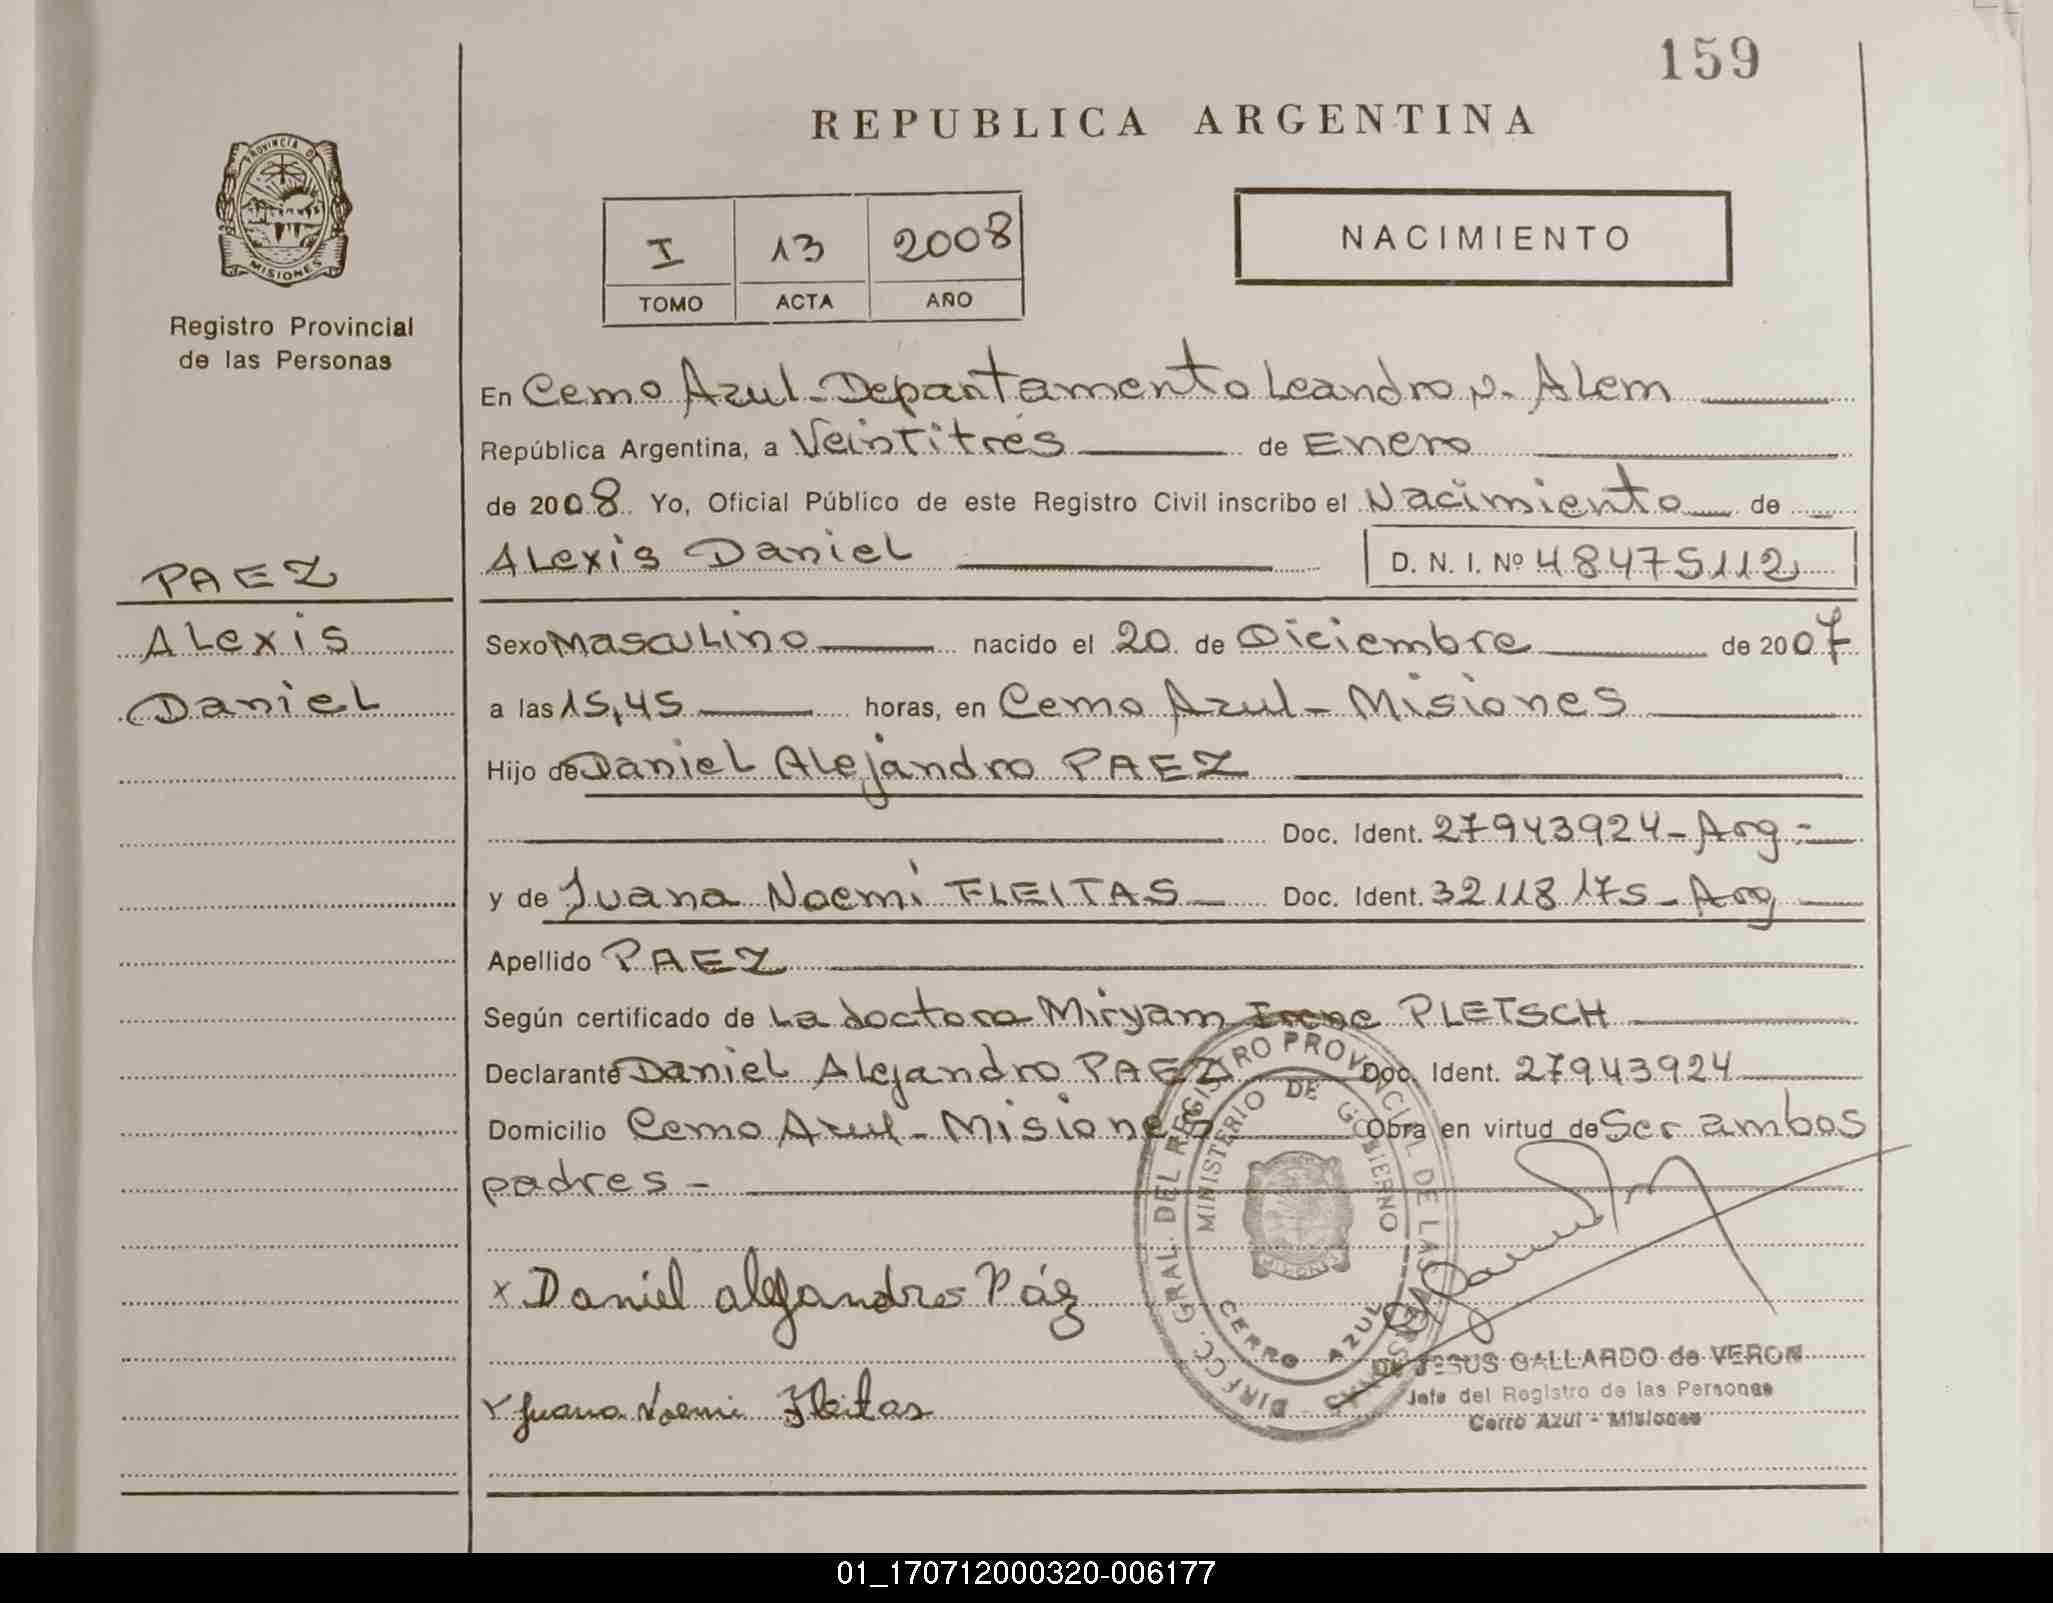 159
REPUBLICA ARGENTINA
PROVINCIA D
MISIONES
Registro Provincial
de las Personas
I 13 2008
TOMO ACTA AÑO
NACIMIENTO
En Cerro Azul - Departamento Leandro N. Alem
República Argentina, a Veintitrés de Enero
de 2008 Yo, Oficial Público de este Registro Civil inscribo el Nacimiento de
Alexis Daniel D. N. I. Nº 48475112
PAEZ
Alexis
Daniel
Sexo Masculino nacido el 20 de Diciembre de 2007
a las 15,45 horas, en Cerro Azul - Misiones
Hijo de Daniel Alejandro PAEZ
Doc. Ident. 27943924 - Arg -
y de Juana Noemi FLEITAS Doc. Ident. 32118175 - Arg
Apellido PAEZ
Según certificado de La doctora Miryam Irene PLETSCH
Declarante Daniel Alejandro PAEZ Doc. Ident. 27943924
Domicilio Cerro Azul - Misiones Obra en virtud de Ser ambos
padres -
x Daniel alejandro Páez
Juana Noemi Fleitas
DIRECC. GRAL. DEL REGISTRO PROVINCIAL DE LAS PERSONAS
MINISTERIO DE GOBIERNO
MISIONES
CERRO AZUL
DE JESUS GALLARDO de VERON
Jefe del Registro de las Personas
Cerro Azul - Misiones
01_170712000320-006177